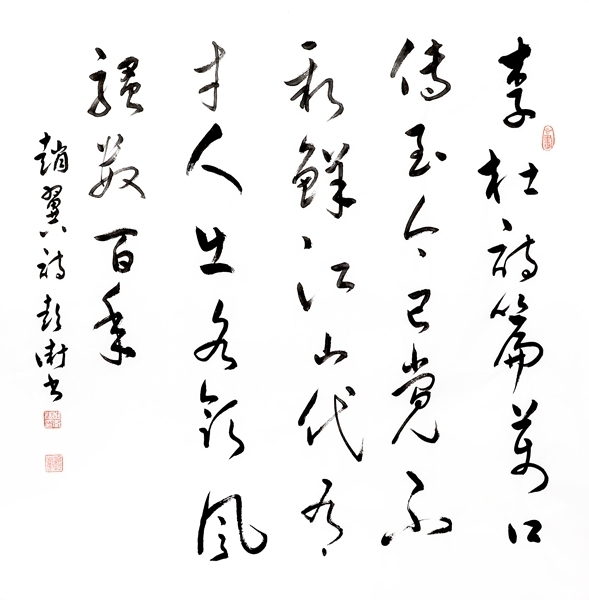 李杜詩篇萬口
傳至今已覺不
新鮮江山代有
才人出各領風
騷數百年
趙翼詩 彭書